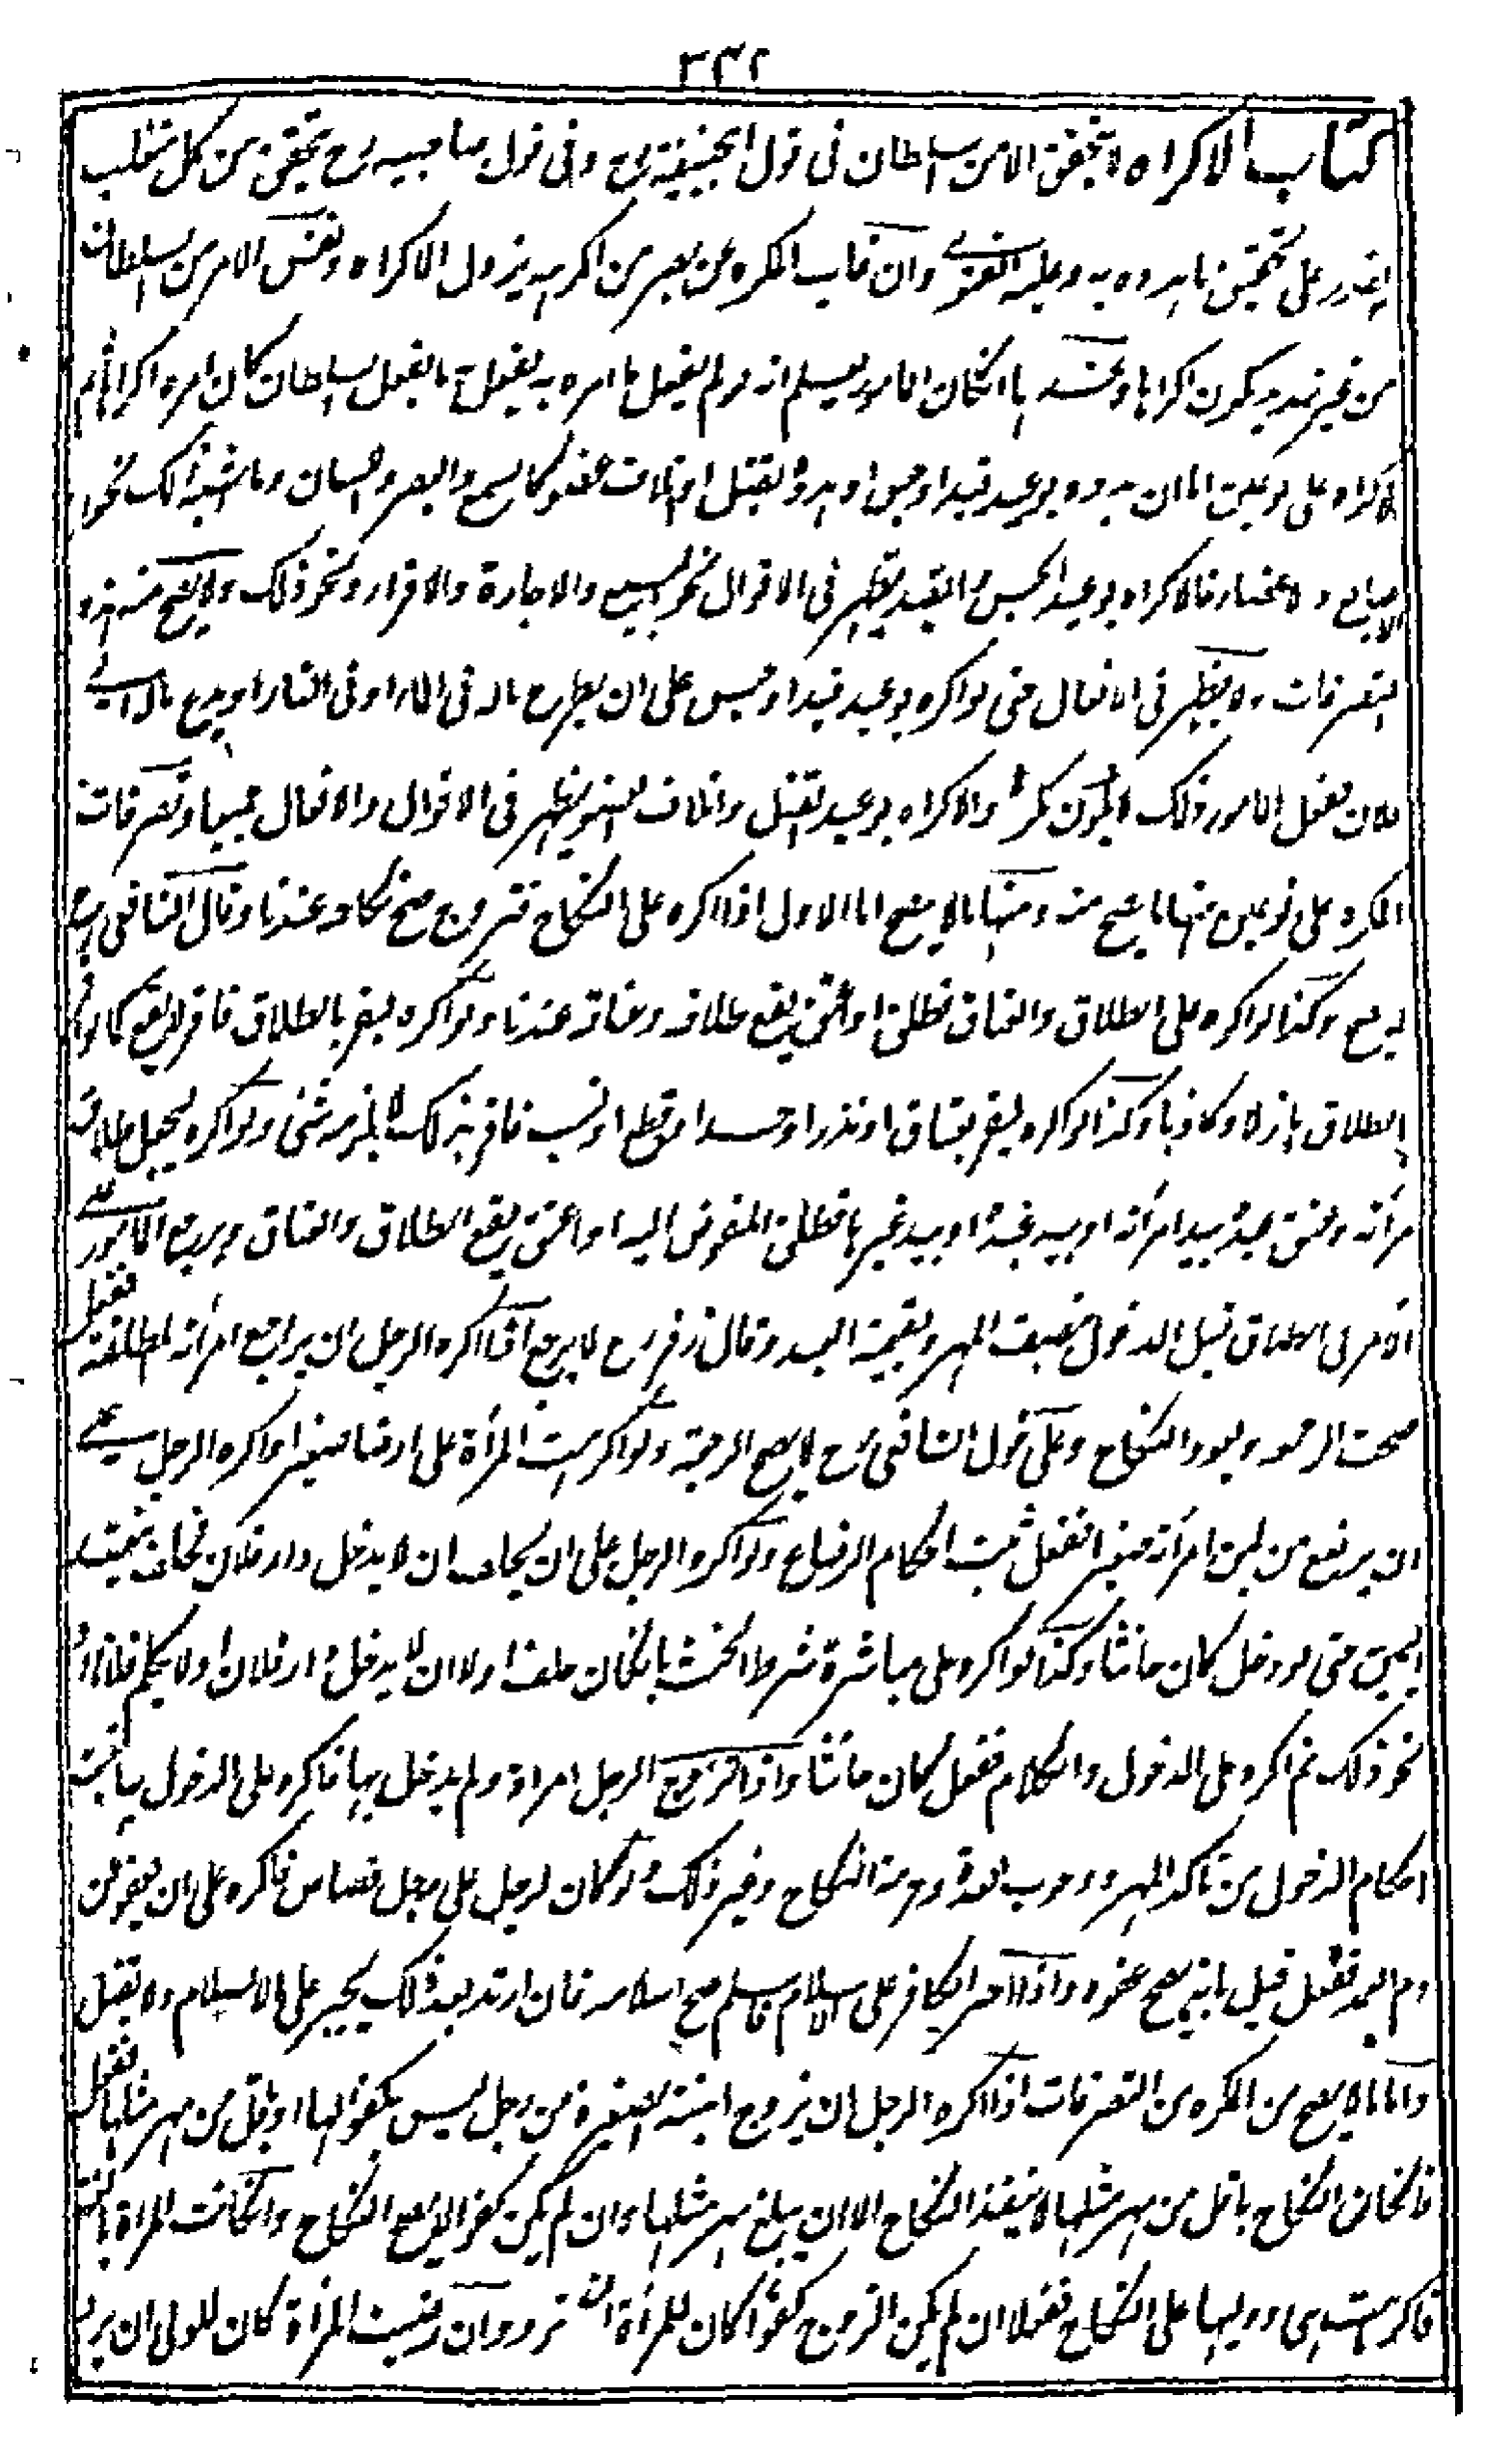 ٢٤٢
كتاب الاكراه لا يتحقق الا من سلطان فى قول ابيحنيفة رح وفى قول صاحبيه رح يتحقق من كل متغلب
يقدر على تحقيق ما هدده به وعليه الفتوى وان غاب المكره عن بصر من اكرهه يزول الاكراه ونفس الامر من السلطان
من غير تهديد يكون اكراها وعنده ان كان المامور يعلم انه لو لم يفعل ما امره به يفعل به ما يفعل السلطان كان امره اكراها ثم
الاكراه على نوعين اما ان هدده بوعيد قيد او حبس او هدده بقتل او اتلاف عضو كالسمع والبصر واللسان وما اشبه ذلك نحو
فالاكراه بوعيد الحبس والقيد يظهر فى الاقوال نحو البيع والاجارة والاقرار ونحو ذلك ولا يصح منه هذه
التصرفات ولا يظهر فى الافعال حتى لو اكره بوعيد قيد او حبس على ان يطرح ماله فى الماء او فى النار او يدفع ماله الى
فلان ففعل المامور ذلك لا يكون مكرها والاكراه بوعيد القتل واتلاف العضو يظهر فى الاقوال والافعال جميعا وتصرفات
المكره على نوعين منها ما يصح منه ومنها ما لا يصح اما الاول اذا اكره على النكاح فتزوج صح نكاحه عندنا وقال الشافعى رح
لا يصح وكذا لو اكره على الطلاق والعتاق فطلق او اعتق يقع طلاقه وعتاقه عندنا ولو اكره ليقر بالطلاق فاقر لا يقع كما لو اقر
بالطلاق هازلا وكاذبا وكذا لو اكره ليقر بعتاق او نذر او حد او قطع او نسب فاقر بذلك لا يلزمه شئ ولو اكره ليجعل طلاق
امرأته وعتق عبده بيد امرأته او بيد عبده او بيد غيرها فطلق المفوض اليه او اعتق يقع الطلاق والعتاق ويرجع المامور على
الآمر فى الطلاق قبل الدخول بنصف المهر وبقيمة العبد وقال زفر رح لا يرجع اذا اكره الرجل ان يراجع امرأته المطلقة ففعل
صحت الرجعة ويعود النكاح وعلى قول الشافعى رح لا يصح الرجعة ولو اكرهت المرأة على ارضاع صغير او اكره الرجل على
ان يرضع من لبن امرأته صغيرا ففعل ثبت احكام الرضاع ولو اكره الرجل على ان يحلف ان لا يدخل دار فلان فحلف ينعقد
اليمين حتى لو دخل كان حانثا وكذا لو اكره على مباشرة شرط الحنث بان كان حلف اولا ان لا يدخل دار فلان او لا يكلم فلانا او
نحو ذلك ثم اكره على الدخول والكلام ففعل كان حانثا واذا تزوج الرجل امرأة ولم يدخل بها فاكره على الدخول بها يثبت
احكام الدخول من تاكد المهر ووجوب العدة وحرمة النكاح وغير ذلك ولو كان لرجل على رجل قصاص فاكره على ان يعفو عن
دم العمد ففعل قيل بانه يصح عفوه واذا اجبر الكافر على الاسلام فاسلم صح اسلامه فان ارتد بعد ذلك يجبر على الاسلام ولا يقتل
واما ما لا يصح من المكره من التصرفات اذا اكره الرجل ان يزوج ابنته الصغيرة من رجل ليس بكفو لها او باقل من مهر مثلها ففعل
فان كان النكاح باقل من مهر مثلها لا ينفذ النكاح الا ان يبلغ مهر مثلها وان لم يكن كفوا لا يصح النكاح وان كانت المرأة بالغة
فاكرهت هى ووليها على النكاح ففعلا ان لم يكن الزوج كفوا كان للمرأة ان ترد وان رضيت المرأة كان للولى ان يرد